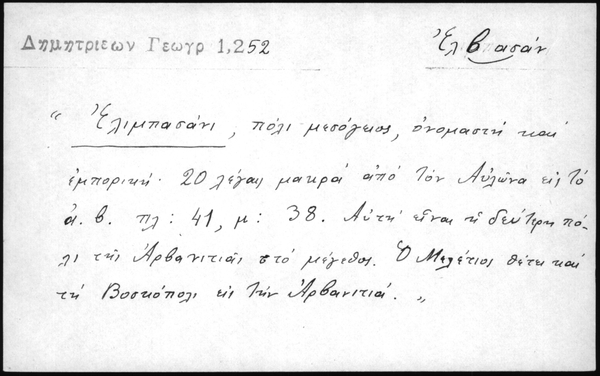 Δημητριεων Γεωγρ 1,252
Ἐλβασάν
“ Ἐλιμπασάνι, πόλι μεσόγειος, ὀνομαστή καί
ἐμπορική· 20 λέγαις μακρά ἀπό τόν Αὐλῶνα εἰς τό
ἀ. β. πλ: 41, μ: 38. Αὐτή εἶναι ἡ δεύτερη πό-
λι τῆς Ἀρβανιτιᾶς στό μέγεθος. Ὁ Μελέτιος θέτει καί
τή Βοσκόπολι εἰς τήν Ἀρβανιτιά. „